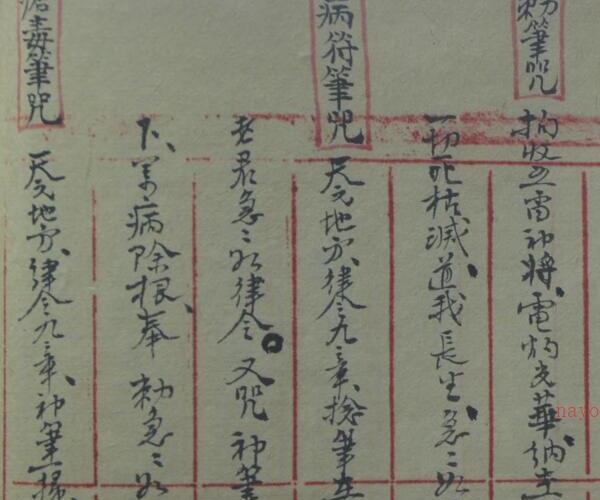 勅筆咒
拘收五雷神將、電灼光華、納主
一切死枯滅、道我長生、急〻如
病符筆咒
天円地方、律令九章、捻筆在
老君急〻如律令。又咒 神筆
下、万病除根、奉 勅急〻如
瘡毒筆咒
天円地方、律令九章、神筆
nayo